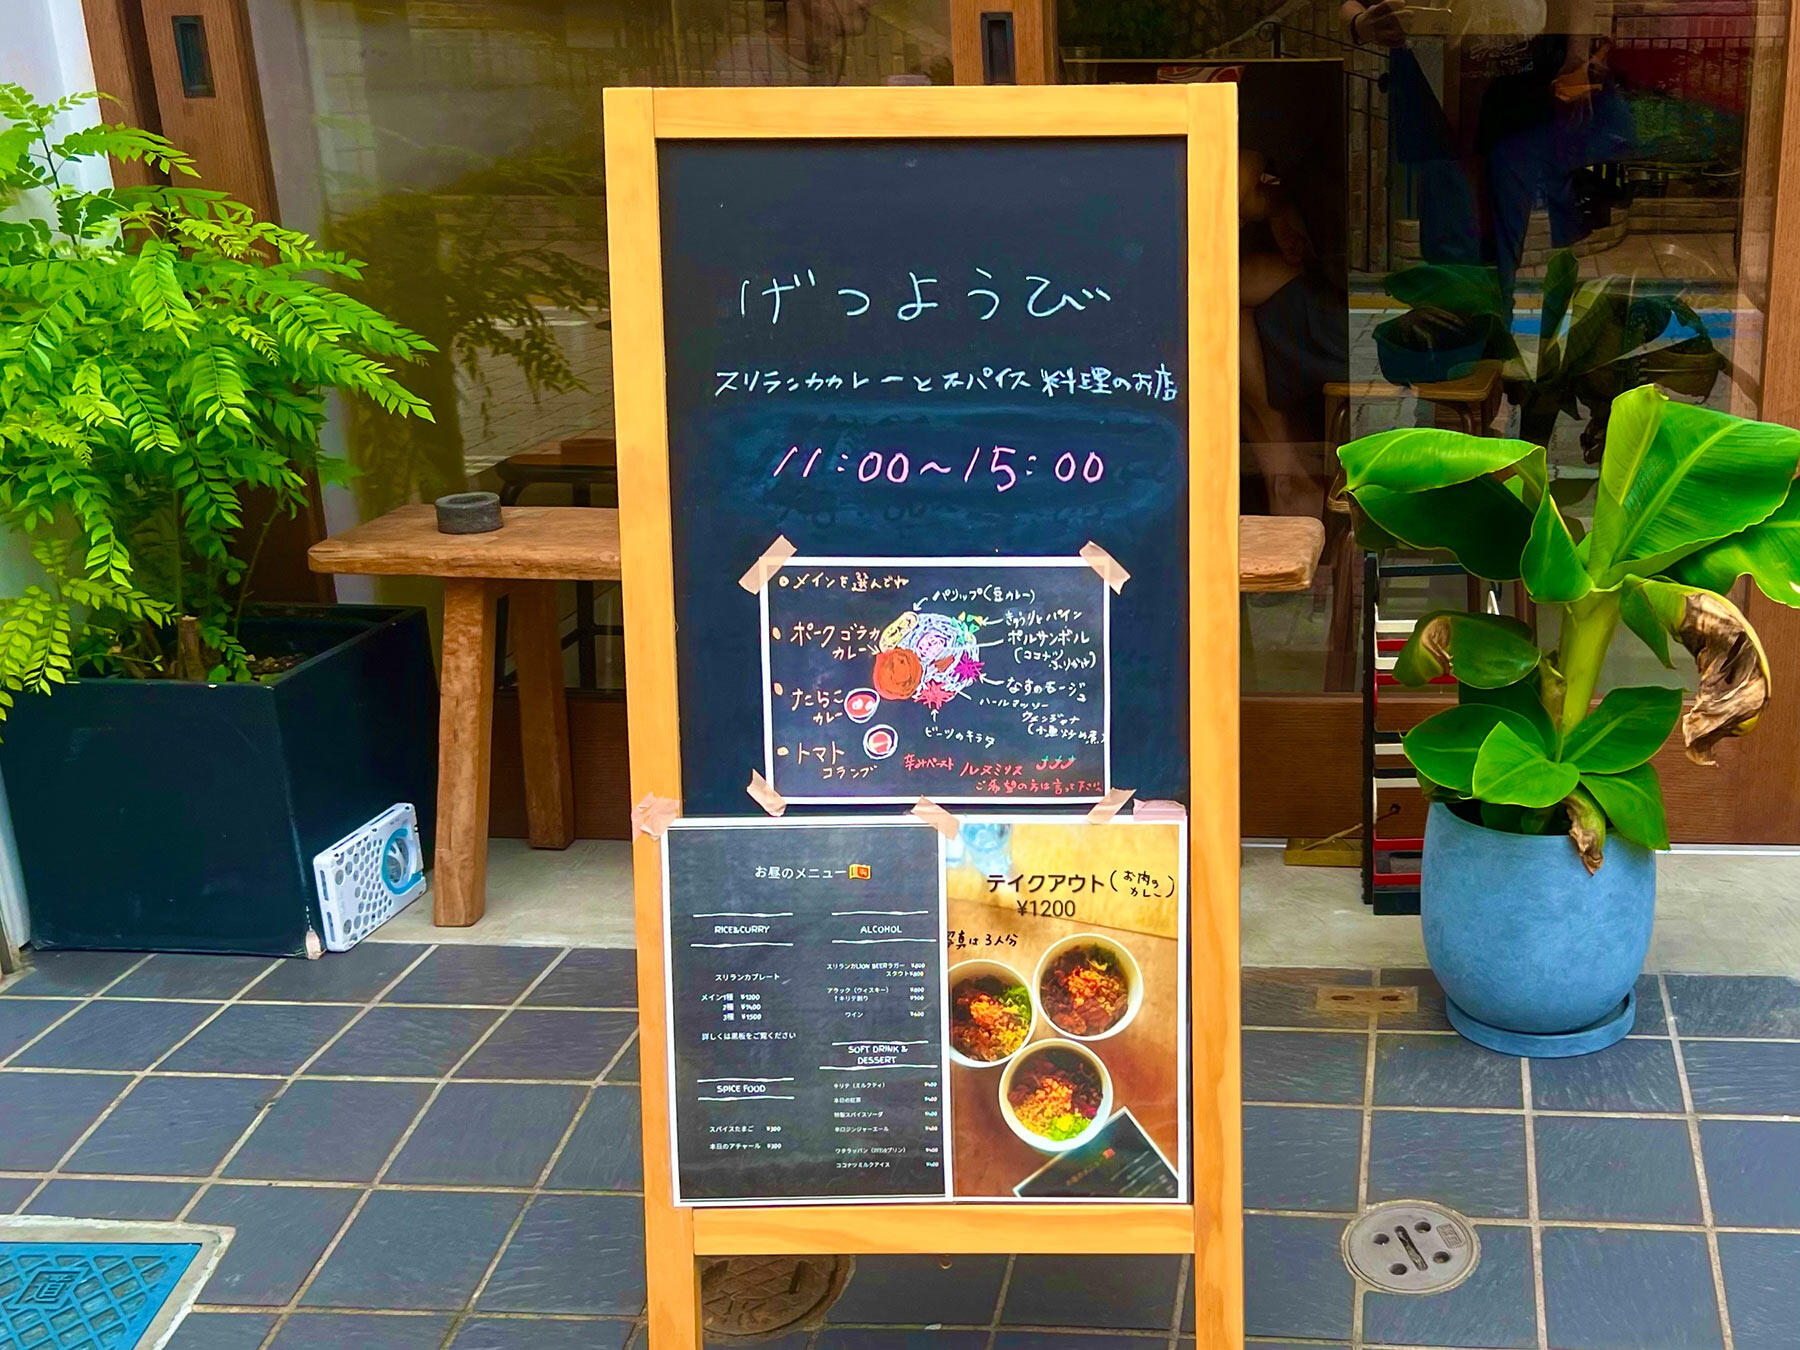 げつようび
スリランカカレーとスパイス料理のお店
11:00～15:00
メインを選んでね
パリップ(豆カレー)
きゅうりとパイン
ポークゴラカ
カレー
ポルサンボル
(ココナツ
ふりかけ)
なすのモージュ
たらこ
カレー
ハールマッソー
ウェンジャナ
ビーツのキラタ
トマト
コランブ
辛みペースト ルヌミリス
ご希望の方は言って下さい
お昼のメニュー
RICE&CURRY
スリランカプレート
メイン1種 ¥1200
2種 ¥1400
3種 ¥1500
詳しくは黒板をご覧ください
SPICE FOOD
スパイスたまご ¥300
本日のアチャール ¥300
ALCOHOL
スリランカLION BEERラガー ¥800
スタウト¥800
アラック（ウィスキー） ¥800
↑キリテ割り ¥900
ワイン ¥600
SOFT DRINK &
DESSERT
キリテ（ミルクティ） ¥400
本日の紅茶 ¥400
特製スパイスソーダ ¥400
辛口ジンジャーエール ¥400
ワタラッパン ¥400
ココナツミルクアイス ¥400
テイクアウト(お肉のカレー)
¥1200
写真は3人分
お昼のメニュー